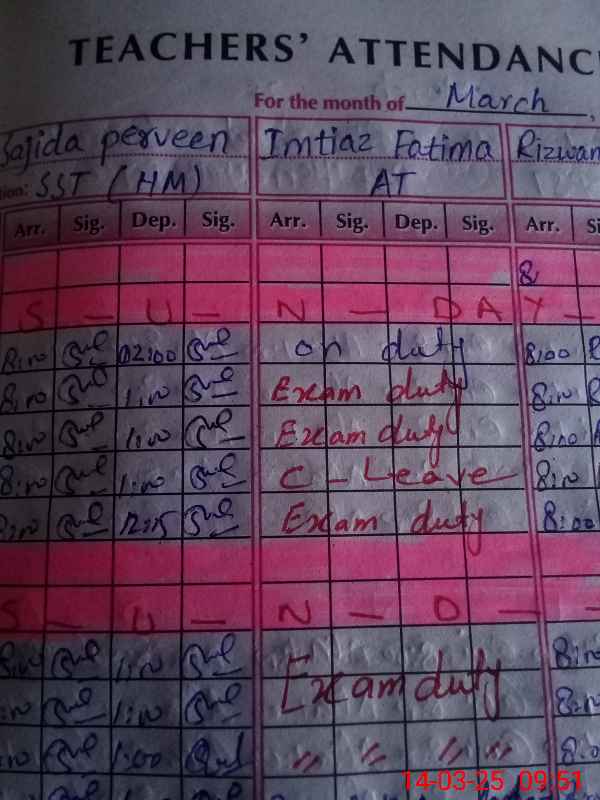 TEACHERS' ATTENDANC
For the month of March,
Sajida perveen Imtiaz Fatima Rizwan
tion: SST (HM) AT
Arr. Sig. Dep. Sig. Arr. Sig. Dep. Sig. Arr. Si
8
S - U - N - DAY -
8:00 02:00 on duty 8:00
8:00 1:00 Exam duty 8:00
8:00 1:00 Exam duty 8:00
8:00 1:00 C-Leave 8:00
8:00 12:15 Exam duty 8:00
S - U - N - D - -
8:00 1:00 Exam duty 8:00
:00 1:00 8:00
:00 1:00 " " " " 8:0
14-03-25 09:51